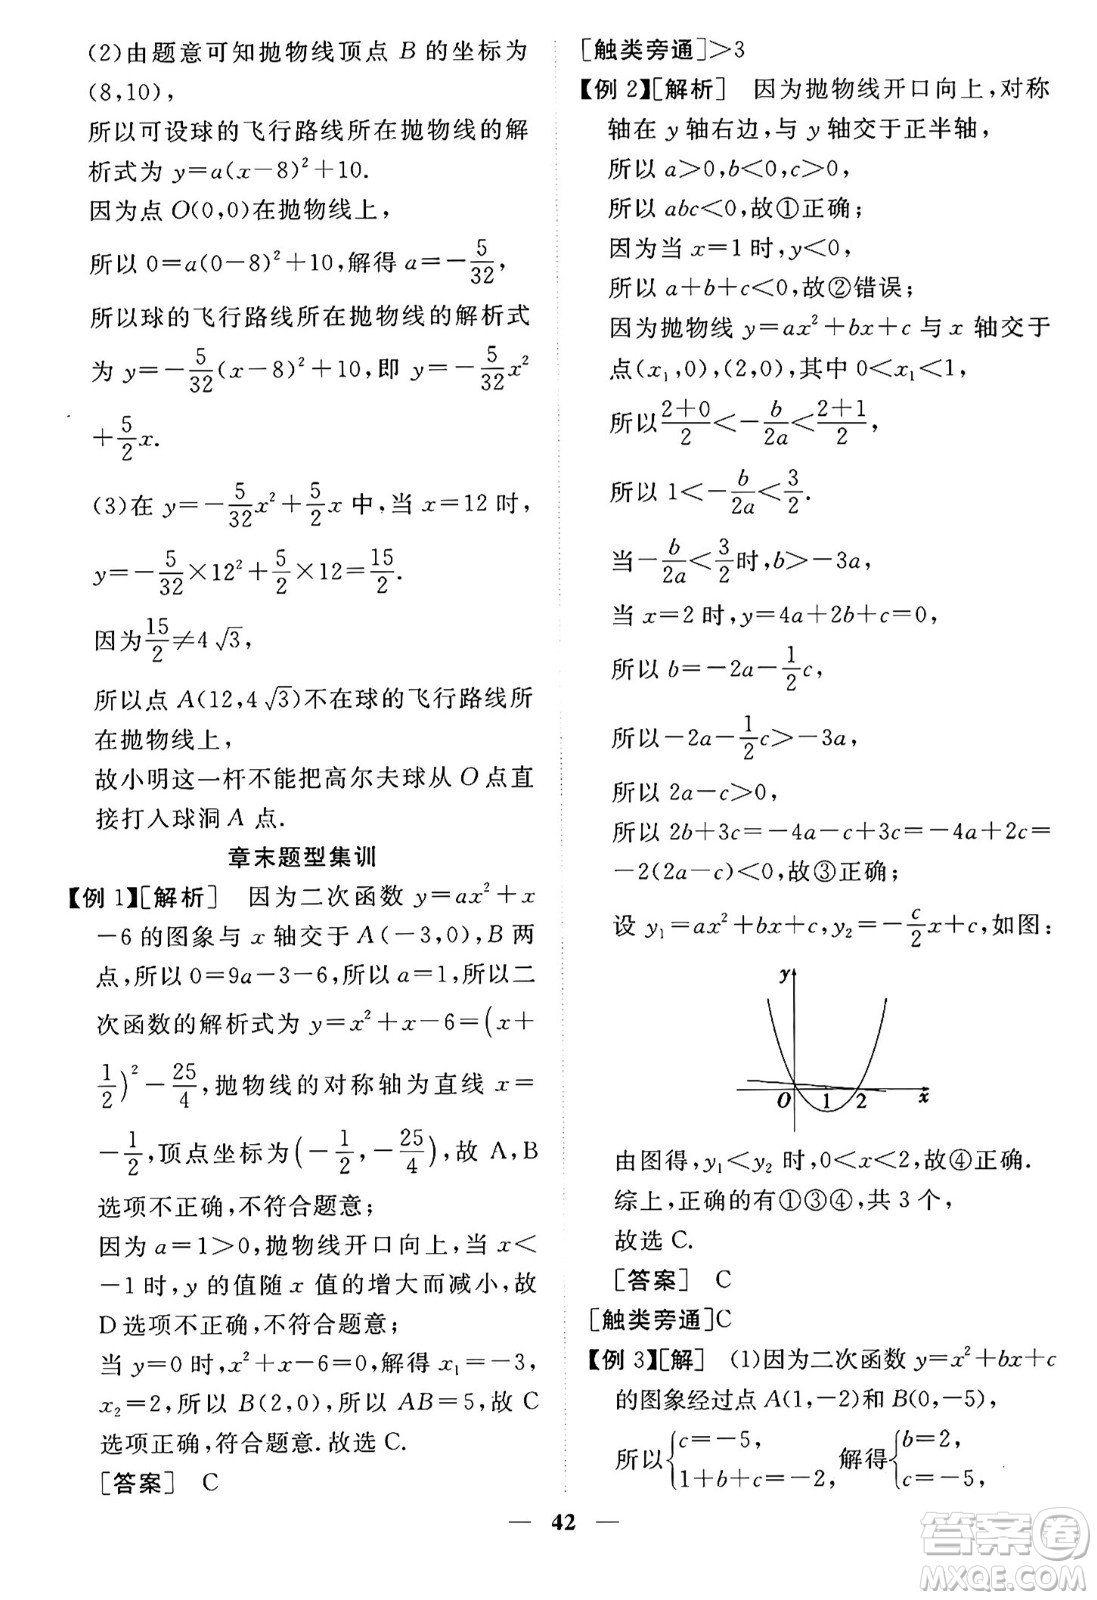 (2)由题意可知抛物线顶点 B 的坐标为
(8,10),
所以可设球的飞行路线所在抛物线的解
析式为 y=a(x-8)²+10.
因为点 O(0,0)在抛物线上,
所以 0=a(0-8)²+10,解得 a=-5/32,
所以球的飞行路线所在抛物线的解析式
为 y=-5/32(x-8)²+10,即 y=-5/32x²
+5/2x.
(3)在 y=-5/32x²+5/2x 中,当 x=12 时,
y=-5/32×12²+5/2×12=15/2.
因为15/2≠4√3,
所以点 A(12,4√3)不在球的飞行路线所
在抛物线上,
故小明这一杆不能把高尔夫球从 O 点直
接打入球洞 A 点.
章末题型集训
【例 1】[解析] 因为二次函数 y=ax²+x
-6 的图象与 x 轴交于 A(-3,0),B 两
点,所以 0=9a-3-6,所以 a=1,所以二
次函数的解析式为 y=x²+x-6=(x+
1/2)²-25/4,抛物线的对称轴为直线 x=
-1/2,顶点坐标为(-1/2,-25/4),故 A,B
选项不正确,不符合题意;
因为 a=1>0,抛物线开口向上,当 x<
-1 时,y 的值随 x 值的增大而减小,故
D 选项不正确,不符合题意;
当 y=0 时,x²+x-6=0,解得 x₁=-3,
x₂=2,所以 B(2,0),所以 AB=5,故 C
选项正确,符合题意.故选 C.
[答案] C
[触类旁通]>3
【例 2】[解析] 因为抛物线开口向上,对称
轴在 y 轴右边,与 y 轴交于正半轴,
所以 a>0,b<0,c>0,
所以 abc<0,故①正确;
因为当 x=1 时,y<0,
所以 a+b+c<0,故②错误;
因为抛物线 y=ax²+bx+c 与 x 轴交于
点(x₁,0),(2,0),其中 0<x₁<1,
所以(2+0)/2<-b/2a<(2+1)/2,
所以 1<-b/2a<3/2.
当-b/2a<3/2时,b>-3a,
当 x=2 时,y=4a+2b+c=0,
所以 b=-2a-1/2c,
所以-2a-1/2c>-3a,
所以 2a-c>0,
所以 2b+3c=-4a-c+3c=-4a+2c=
-2(2a-c)<0,故③正确;
设 y₁=ax²+bx+c,y₂=-c/2x+c,如图:
y
O 1 2 x
由图得,y₁<y₂ 时,0<x<2,故④正确.
综上,正确的有①③④,共 3 个,
故选 C.
[答案] C
[触类旁通]C
【例 3】[解] (1)因为二次函数 y=x²+bx+c
的图象经过点 A(1,-2)和 B(0,-5),
所以{c=-5, 1+b+c=-2, 解得{b=2, c=-5,
— 42 —
答案圈
MXQE.COM